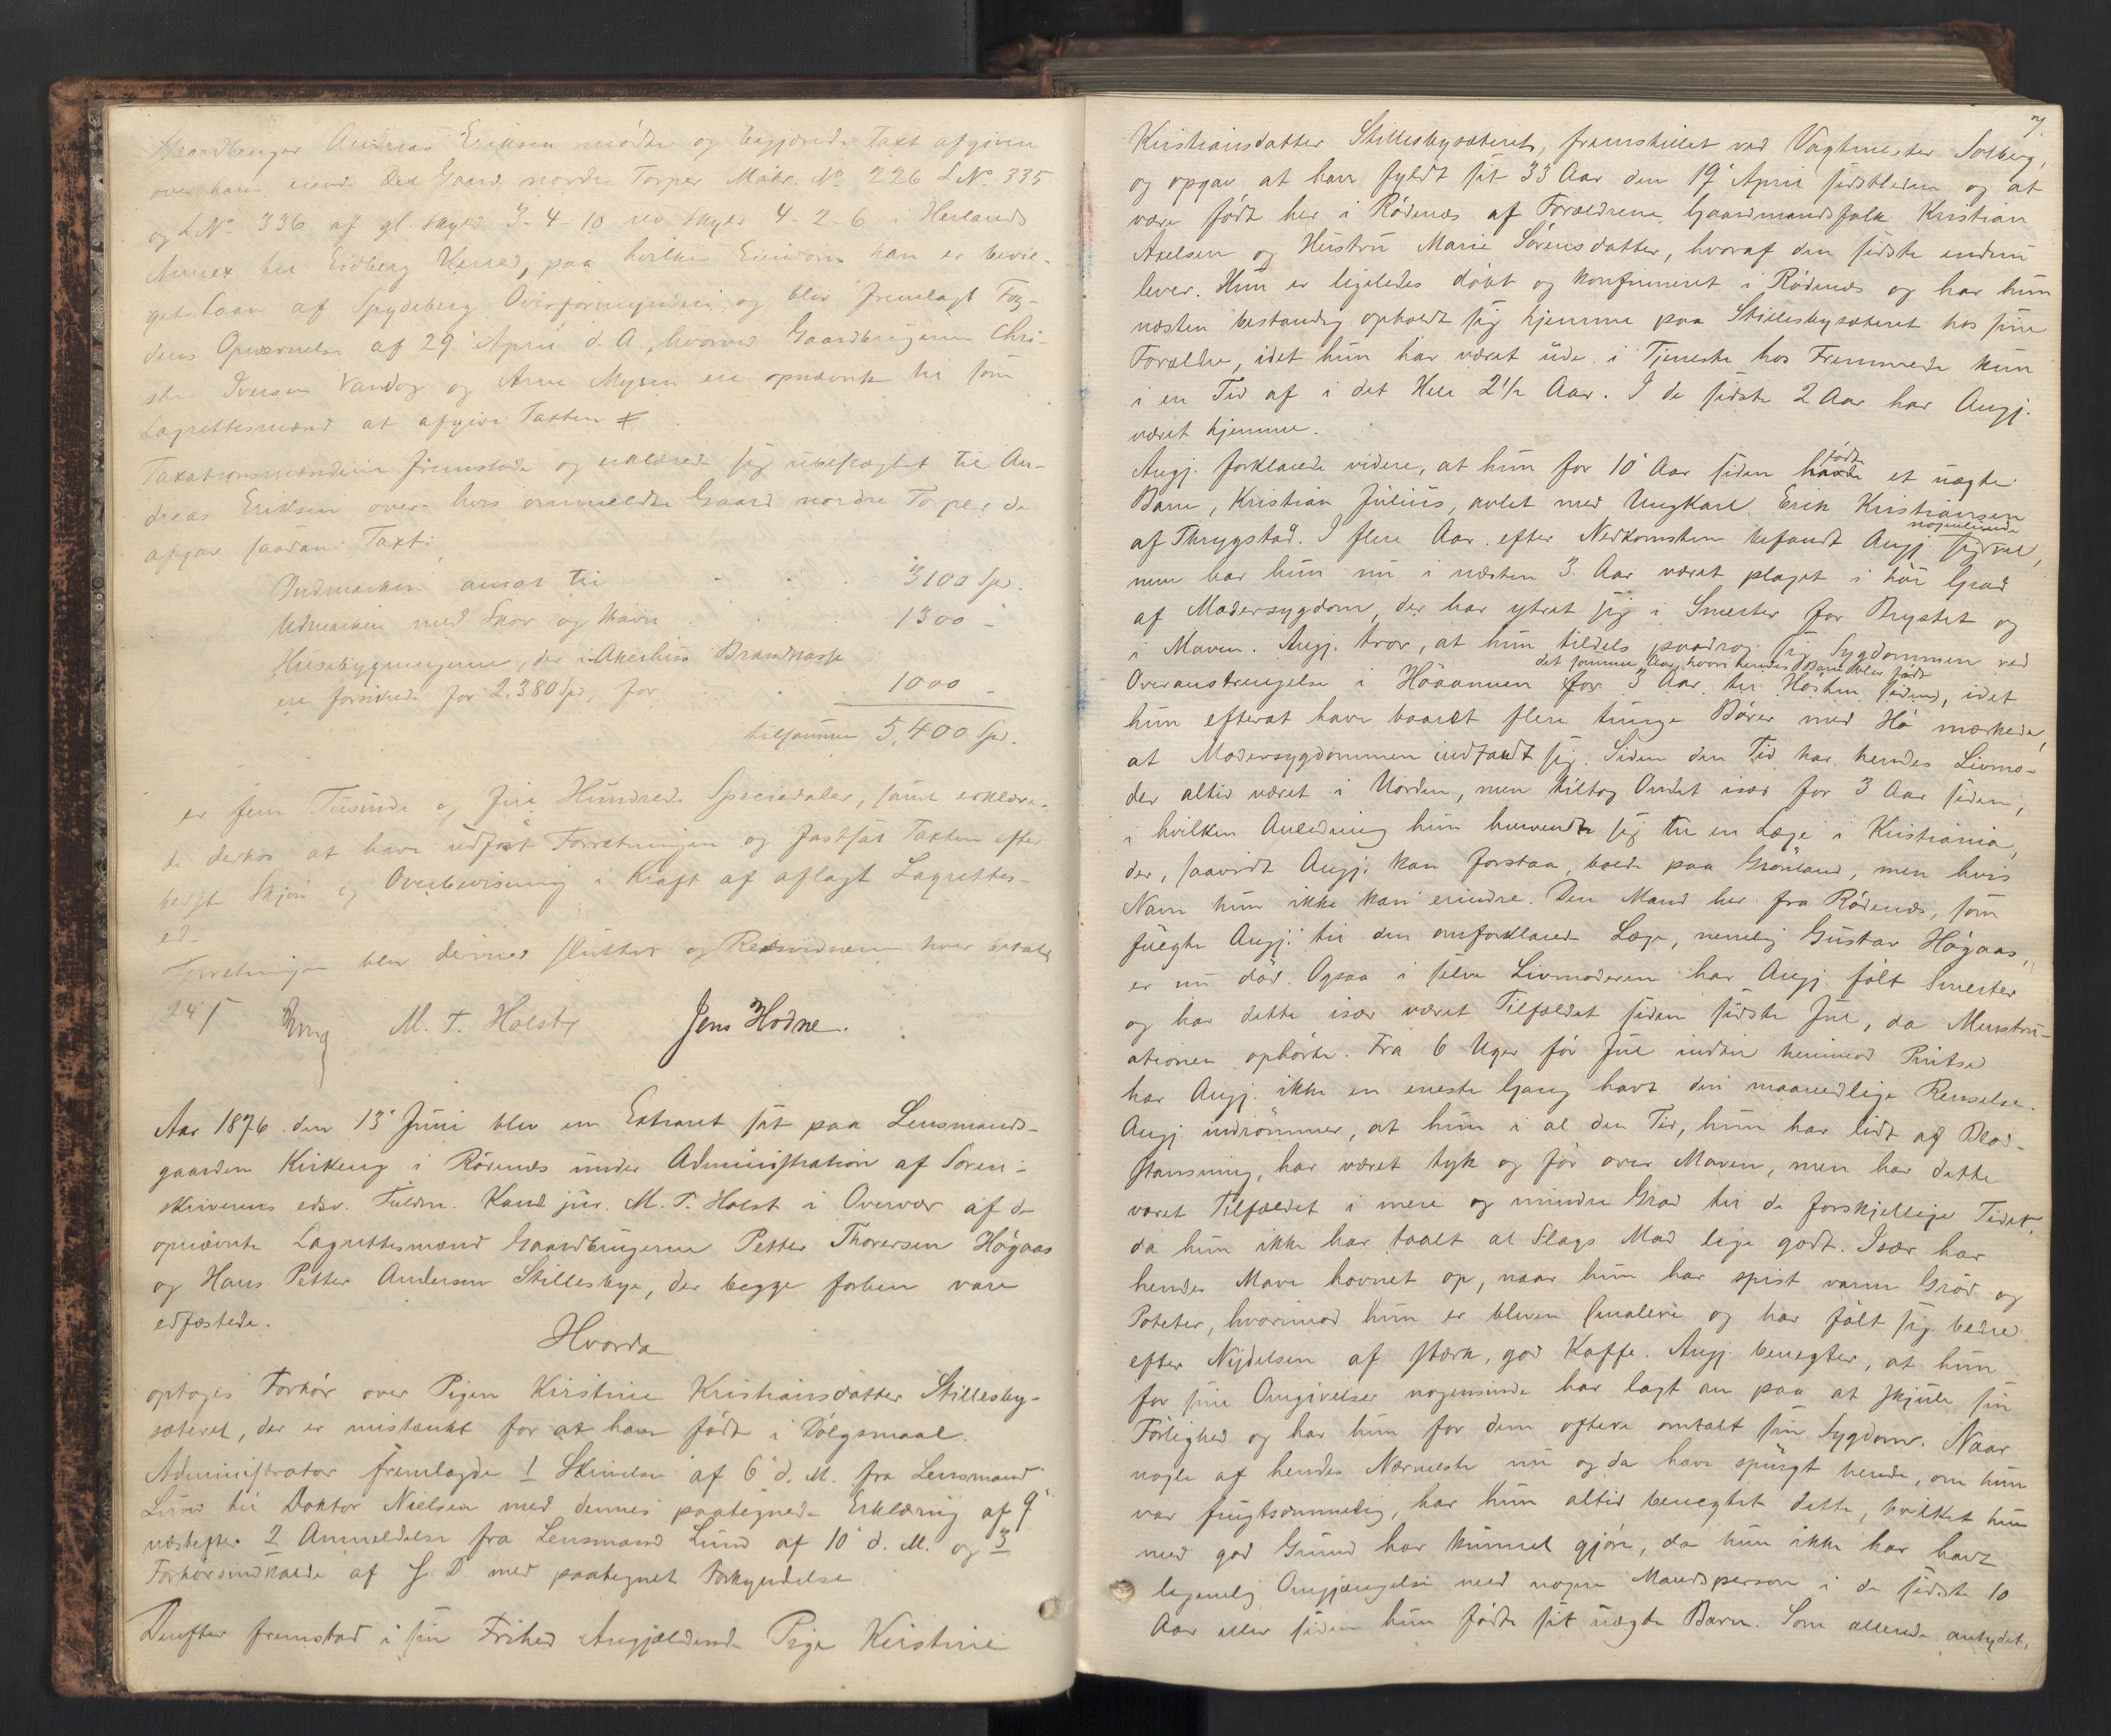 Gaardbruger Andreas Eriksen mødte og begjærede Taxt afgiven
over ham eiende Del Gaard nordre Torper Matr. No 226 LNo 335
og LNo 336 af gl. Skyld 3-4-10 ny Skyld 4-2-6 i Herlands
Annex til Eidberg Herred, paa hvilken Eiendom han er bevil-
get Laan af Spydeberg Overformynderi, og blev fremlagt Fog-
dens Opnævnelse af 29 April d. A., hvorved Gaardbrugerne Chri-
sten Iversen Vandug og Arne Mysen ere opnævnte til som
Lagrettesmænd at afgive Taxten
Taxationsmændene fremstode og erklærede sig ubeslægtet til An-
dreas Eriksen over hvis ommeldte Gaard nordre Torper de
afgav saadan Taxt:
Indmarken ansat til 3100 Spd.
Udmarken med Skov og Havn 1300 -
Husebygningerne, der i Akershus Brandkasse
ere forsikrede for 2,380 Spd, for 1000 -
tilsammen 5,400 Spd.
er fem Tusinde og fire Hundrede Speciedaler, samt erklære-
de derhos at have udført Forretningen og fastsat Taxten efter
bedste Skjøn og Overbevisning i Kraft af aflagt Lagrettes-
ed.
Forretningen blev dermed sluttet og Retsvidnerne hver betalt
24 ß
M. T. Holst Jens Hodne.
Aar 1876 den 13 Juni blev en Extraret sat paa Lensmands-
gaarden Kirkeng i Rødenæs under Administration af Soren-
skriverens edsv. Fuldm. Kand jur. M. T. Holst i Overvær af de
opnævnte Lagrettesmænd Gaardbrugerne Petter Thoresen Høgaas
og Hans Petter Andersen Stillesbye, der begge forhen vare
edfæstede.
Hvorda
optoges Forhør over Pigen Kirstine Kristiansdatter Stillesby-
sæteret, der er mistænkt for at have født i Dølgsmaal.
Administrator fremlagde 1 Skrivelse af 6 d. M. fra Lensmand
Lund til Doktor Nielsen med dennes paategnede Erklæring af 9
næstefter 2 Anmeldelse fra Lensmand Lund af 10 d. M. og 3
Forhørsindkalde af S. D. med paategnet Forkyndelse
Derefter fremstod i sin Frihed Angjældende Pige Kirstine
7.
Kristiansdatter Stillesbysæteret, fremstillet ved Vagtmester Solberg,
og opgav at have fyldt sit 33 Aar den 19 April sidstleden og at
være født her i Rødenæs af Forældrene Gaardmandsfolk Kristian
Axelsen og Hustru Marie Sørensdatter, hvoraf den sidste endnu
lever. Hun er ligeledes døbt og konfirmeret i Rødenæs og har hun
næsten bestandig opholdt sig hjemme paa Stillesbysæteret hos sine
Forældre, idet hun har været ude i Tjeneste hos Fremmede kun
i en Tid af i det Hele 2 1/2 Aar. I de sidste 2 Aar har Angj.
været hjemme.
Angj. forklarede videre, at hun for 10 Aar siden havde fødte et uægte
Barn, Kristian Julius, avlet med Ungkarl Erik Kristiansen
af Thrygstad. I flere Aar efter Nedkomsten befandt Angj. sig nogenlunde vel,
men har hun nu i næsten 3 Aar været plaget i høi Grad
af Modersygdom, der har ytret sig i Smerter for Brystet og
i Maven. Angj. tror, at hun tildels paadrog sig Sygdommen ved
det samme Aar, hvori hendes Barn blev født
Overanstrengelse i Høaannen for 3 Aar til Høsten siden, idet
hun efterat have baaret flere tunge Bører med Hø mærkede,
at Modersygdommen indfandt sig. Siden den Tid har hendes Livmo-
der altid været i Uorden, men tiltog Ondet især for 3 Aar siden,
i hvilken Anledning hun henvendte sig til en Læge i Kristiania,
der, saavidt Angj. kan forstaa, boede paa Grønland, men hvis
Navn hun ikke kan erindre. Den Mand her fra Rødenæs, som
fulgte Angj. til den omforklarede Læge, nemlig Gustav Høgaas,
er nu død. Ogsaa i selve Livmoderen har Angj. følt Smerter
og har dette især været Tilfældet siden sidste Jul, da Menstru-
ationen ophørte. Fra 6 Uger før Jul indtil henimod Pintse
har Angj. ikke en eneste Gang havt den maanedlige Renselse.
Angj indrømmer, at hun i al den Tid, hun har lidt af Blod-
stansning, har været tyk og før over Maven, men har dette
været Tilfældet i mere og mindre Grad til de forskjellige Tider,
da hun ikke har taalt al Slags Mad lige godt. Især har
hendes Mave hovnet op, naar hun har spist varm Grød og
Poteter, hvorimod hun er bleven smalere og har følt sig bedre
efter Nydelsen af stærk, god Kaffe. Angj. benegter, at hun
for sine Omgivelser nogensinde har lagt an paa at skjule sin
Førlighed og har hun for dem oftere omtalt sin Sygdom. Naar
nogle af hendes Nærmeste nu og da have spurgt hende, om hun
var frugtsommelig, har hun altid benegtet dette, hvilket hun
med god Grund har kunnet gjøre, da hun ikke har havt
legemlig Omgjængelse med nogen Mandsperson i de sidste 10
Aar eller siden hun fødte sit uægte Barn. Som allerede antydet,